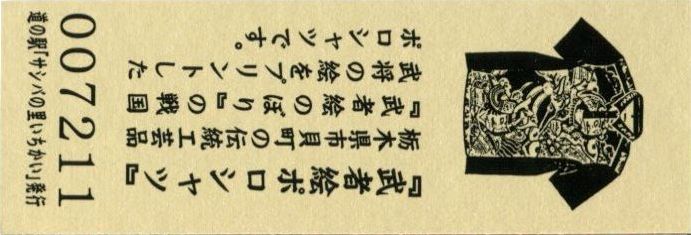 『武者絵ポロシャツ』
栃木県市貝町の伝統工芸品
『武者絵のぼり』の戦国
武将の絵をプリントした
ポロシャツです。
007211
道の駅「サシバの里いちかい」発行